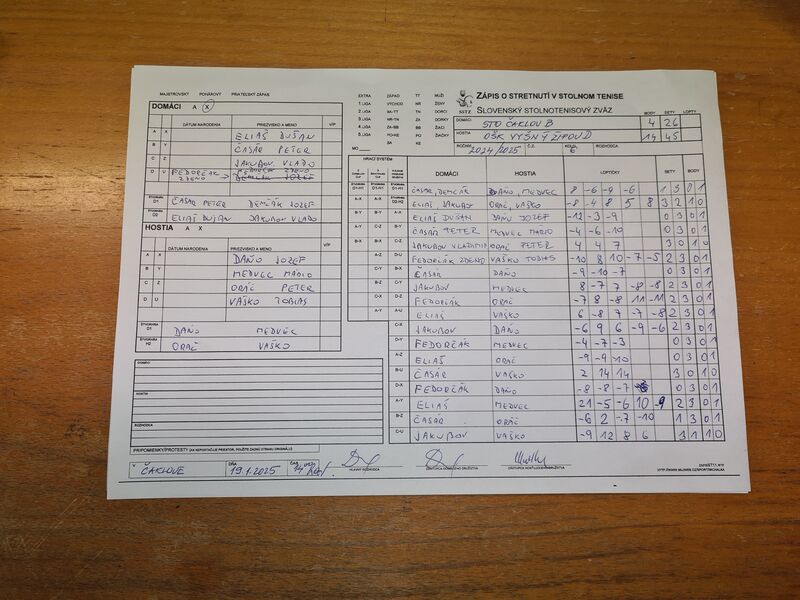 MAJSTROVSKÝ POHÁROVÝ PRIATEĽSKÝ ZÁPAS
DOMÁCI A X
DÁTUM NARODENIA PRIEZVISKO A MENO V/P
A X ELIÁŠ DUŠAN
B Y ČASÁR PETER
C Z JAKUBOV VLADO
D U FEDORČÁK ZDENO
D1 ČASÁR PETER DEMČÁK JOZEF
D2 ELIÁŠ DUŠAN JAKUBOV VLADO
HOSTIA A X
DÁTUM NARODENIA PRIEZVISKO A MENO V/P
A X DAŇO JOZEF
B Y MEDVEC MÁRIO
C Z ORÁČ PETER
D U VAŠKO TOBIAS
DAŇO MEDVEC
ORÁČ VAŠKO
DOMÁCI
HOSTIA
ROZHODCA
PRIPOMIENKY/PROTESTY
V ČAKLOVE DŇA 19.1.2025
HLAVNÝ ROZHODCA
EXTRA ZÁPAD TT MUŽI
1.LIGA VÝCHOD NR ŽENY
2.LIGA BA-TT TN DORCI
3.LIGA NR-TN ZA DORKY
4.LIGA ZA-BB BB ŽIACI
5.LIGA PO-KE PO ŽIAČKY
ZÁPIS O STRETNUTÍ V STOLNOM TENISE
SSTZ SLOVENSKÝ STOLNOTENISOVÝ ZVÄZ
BODY SETY LOPTY
DOMÁCI STO ČAKLOV B 4 26
HOSTIA OŠK VYŠNÝ ŽIPOV D 14 45
ROČNÍK 2024/2025 Č.Z. KOLO
HRACÍ SYSTÉM DOMÁCI HOSTIA LOPTIČKY SETY BODY
ČASÁR, DEMČÁK DAŇO, MEDVEC 8 -6 -9 -6 1 3 0 1
ELIÁŠ JAKUBOV ORÁČ, VAŠKO -8 -4 8 5 8 3 2 1 0
ELIÁŠ DUŠAN DAŇO JOZEF -12 -3 -9 0 3 0 1
ČASÁR PETER MEDVEC MÁRIO -4 -6 -10 0 3 0 1
JAKUBOV VLADIMÍR ORÁČ PETER 4 4 7 3 0 1 0
FEDORČÁK ZDENO VAŠKO TOBIAS -10 8 10 -7 -5 2 3 0 1
ČASÁR DAŇO -9 -10 -7 0 3 0 1
JAKUBOV MEDVEC 8 -7 7 -8 -8 2 3 0 1
FEDORČÁK ORÁČ -7 8 -8 11 -11 2 3 0 1
ELIÁŠ VAŠKO 6 -8 7 -7 -8 2 3 0 1
JAKUBOV DAŇO -6 9 6 -9 -6 2 3 0 1
FEDORČÁK MEDVEC -4 -7 -3 0 3 0 1
ELIÁŠ ORÁČ -9 -9 -10 0 3 0 1
ČASÁR VAŠKO 2 14 14 3 0 1 0
FEDORČÁK DAŇO -8 -8 -7 0 3 0 1
ELIÁŠ MEDVEC 21 -5 -6 10 -9 2 3 0 1
ČASÁR ORÁČ -6 2 -7 -10 1 3 0 1
JAKUBOV VAŠKO -9 12 8 6 3 1 1 0